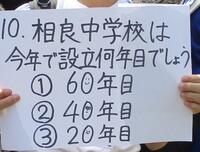 10. 相良中学校は
今年で設立何年目でしょう
① 60年目
② 40年目
③ 20年目